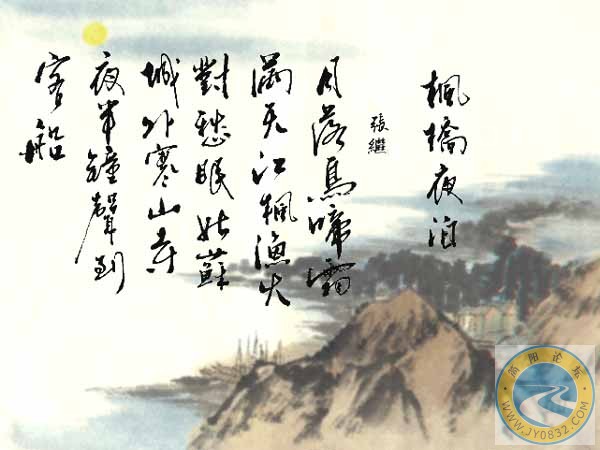 楓橋夜泊
張繼
月落烏啼霜
滿天江楓漁火
對愁眠姑蘇
城外寒山寺
夜半鐘聲到
客船
简阳论坛
WWW.JY0832.COM